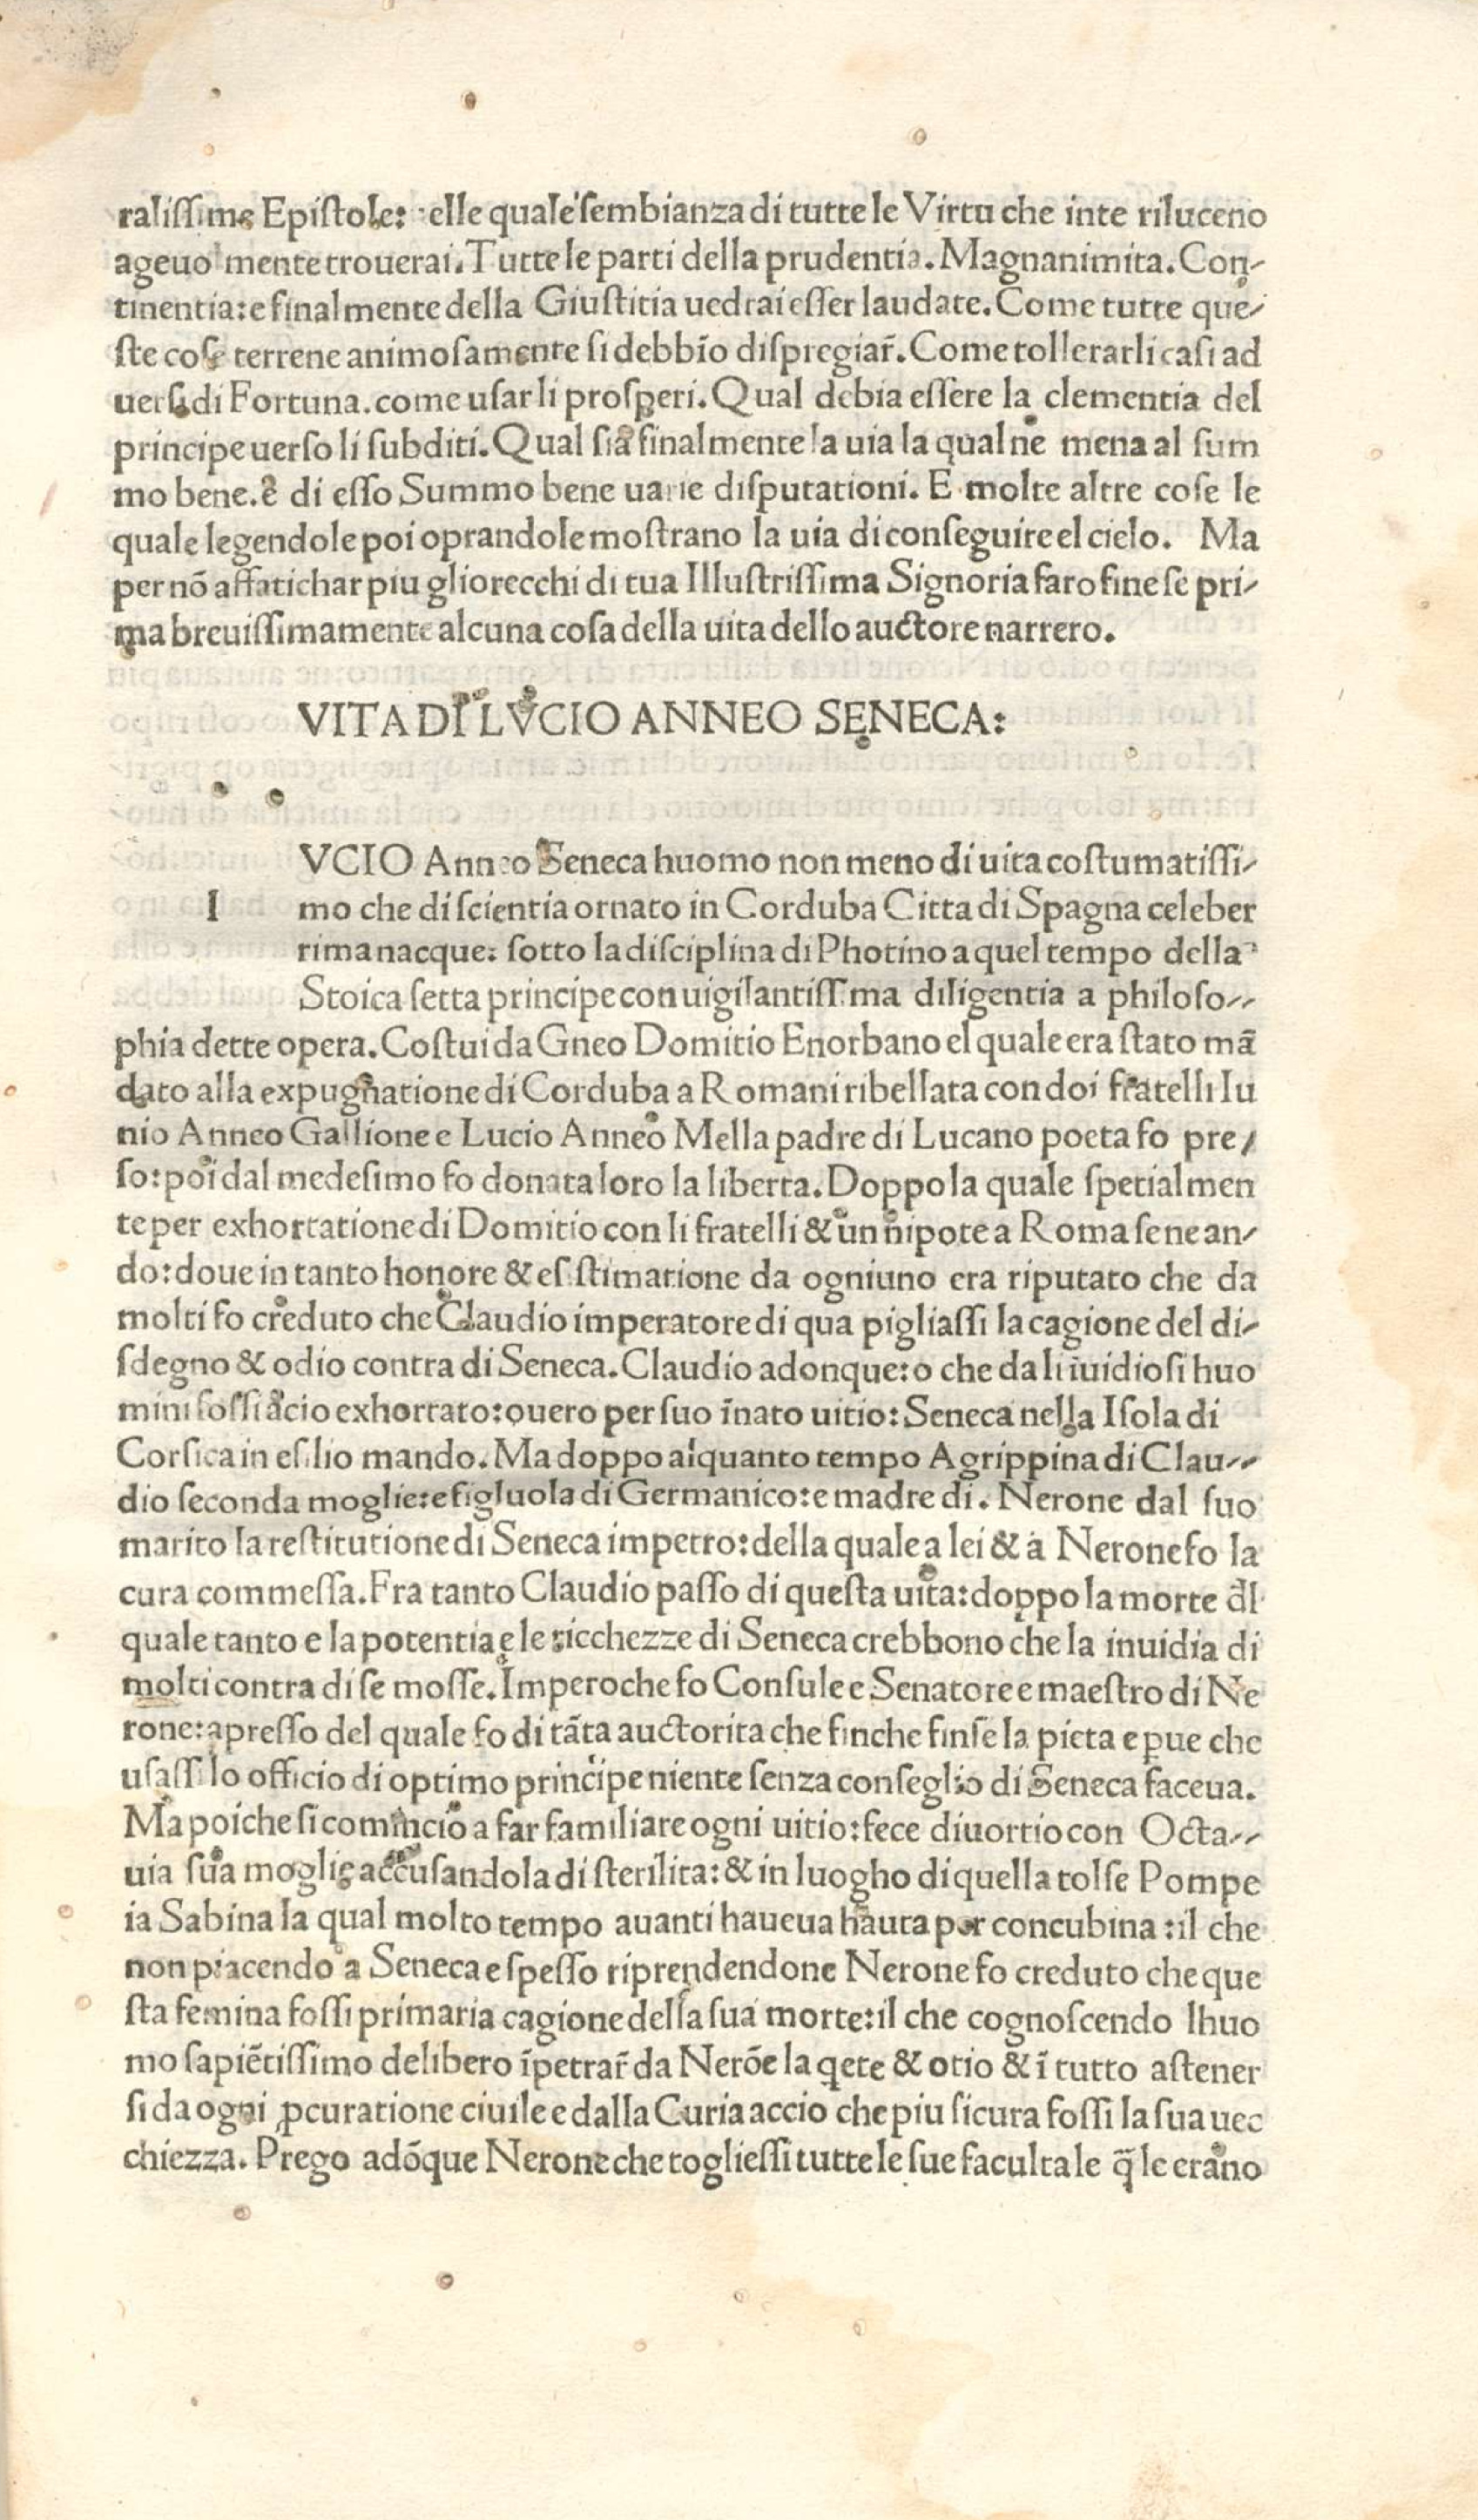 raliſſime Epiſtole: elle quale ſembianza di tutte le Virtu che inte riluceno
ageuolmente trouerai. Tutte le parti della prudentia. Magnanimita. Con-
tinentia: e finalmente della Giuſtitia uedrai eſſer laudate. Come tutte que-
ſte coſe terrene animoſamente ſi debbīo diſpregiar̄. Come tollerar li caſi ad
uerſi di Fortuna. come uſar li proſperi. Qual debia eſſere la clementia del
principe uerſo li ſubditi. Qual ſia finalmente la uia la qual ne mena al ſum
mo bene. e di eſſo Summo bene uarie diſputationi. E molte altre coſe le
quale legendole poi oprandole moſtrano la uia di conſeguire el cielo. Ma
per nō affatichar piu gli orecchi di tua Illuſtriſſima Signoria faro fine ſe pri-
ma breuiſſimamente alcuna coſa della uita dello auctore narrero.
VITA DI LVCIO ANNEO SENECA:
VCIO Anneo Seneca huomo non meno di uita coſtumatiſſi-
l mo che di ſcientia ornato in Corduba Citta di Spagna celeber
rima nacque: ſotto la diſciplina di Photino a quel tempo della
Stoica ſetta principe con uigilantiſſima diligentia a philoſo-
phia dette opera. Coſtui da Gneo Domitio Enorbano el quale era ſtato mā
dato alla expugnatione di Corduba a Romani ribellata con doi fratelli Iu
nio Anneo Gallione e Lucio Anneo Mella padre di Lucano poeta fo pre-
ſo: poi dal medeſimo fo donata loro la liberta. Doppo la quale ſpetialmen
te per exhortatione di Domitio con li fratelli & un nipote a Roma ſene an-
do: doue in tanto honore & eſiſtimatione da ogniuno era riputato che da
molti fo creduto che Claudio imperatore di qua pigliaſſi la cagione del di-
ſdegno & odio contra di Seneca. Claudio adonque: o che da li īuidioſi huo
mini foſſi a cio exhortato: ouero per ſuo īnato uitio: Seneca nella Iſola di
Corſica in eſilio mando. Ma doppo alquanto tempo Agrippina di Clau-
dio ſeconda moglie: e figluola di Germanico: e madre di. Nerone dal ſuo
marito la reſtitutione di Seneca impetro: della quale a lei & a Nerone fo la
cura commeſſa. Fra tanto Claudio paſſo di queſta uita: doppo la morte dl̄
quale tanto e la potentia e le ricchezze di Seneca crebbono che la inuidia di
molti contra di ſe moſſe. Imperoche fo Conſule e Senatore e maeſtro di Ne
rone: apreſſo del quale fo di tāta auctorita che finche finſe la pieta e pue che
uſaſſi lo officio di optimo principe niente ſenza conſeglio di Seneca faceua.
Ma poi che ſi comincio a far familiare ogni uitio: fece diuortio con Octa-
uia ſua moglie accuſandola di ſterilita: & in luogho di quella tolſe Pompe
ia Sabina la qual molto tempo auanti haueua hauta per concubina: il che
non piacendo a Seneca e ſpeſſo riprendendone Nerone fo creduto che que
ſta femina foſſi primaria cagione della ſua morte: il che cognoſcendo lhuo
mo ſapiētiſſimo delibero īpetrar̄ da Nerōe la q̄ete & otio & ī tutto aſtener
ſi da ogni ꝓcuratione ciuile e dalla Curia accio che piu ſicura foſſi la ſua uec
chiezza. Prego adōque Nerone che toglieſſi tutte le ſue faculta le q̄ le erano